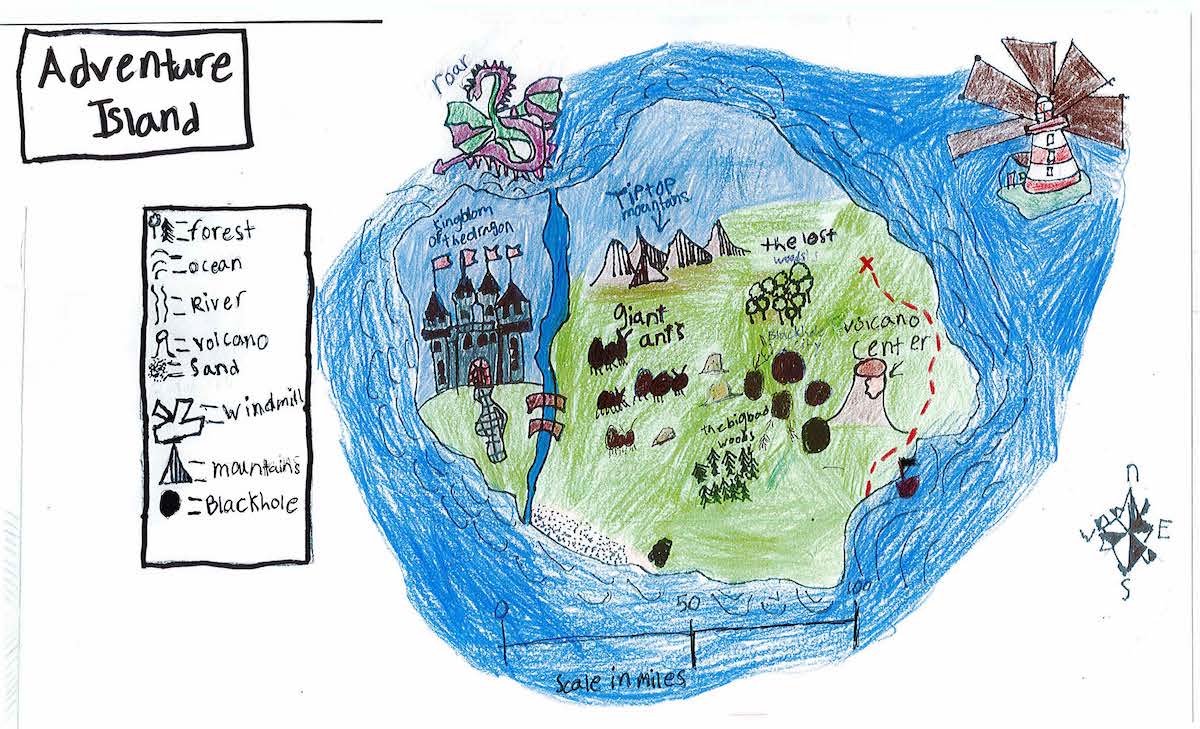 Adventure
Island
roar
=forest
=ocean
=River
=volcano
=Sand
=windmill
=mountains
=Blackhole
Kingdom
of the dragon
Tiptop
mountains
the lost
woods
giant
ants
volcano
center
the big bad
woods
n
E
S
0
50
100
Scale in miles